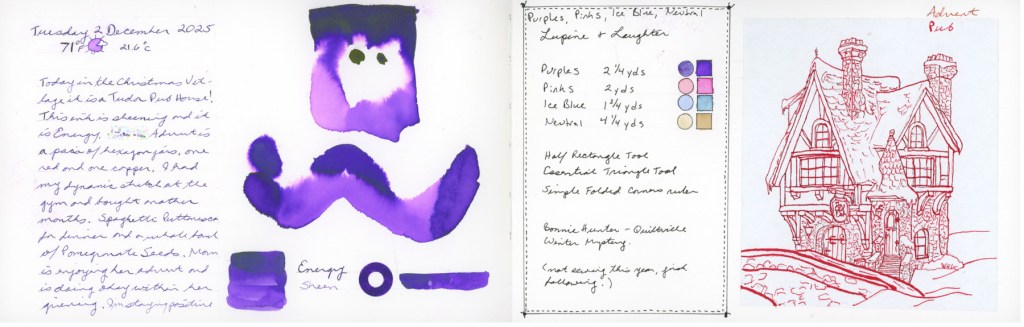 Tuesday 2 December 2025
71°F 21.6°C
Today in the Christmas Vil-
lage it is a Tudor Pub House!
This ink is sheening and it
is Energy. Advent is
a pair of hexagon jars, one
red and one copper. I had
my dynamic stretch at the
gym and bought another
months. Spaghetti Puttanesca
for dinner and a whole tub
of Pomegranate Seeds. Mom
is enjoying her advent and
is doing okay within her
grieving. I'm staying positive
Energy
Sheen
Purples, Pinks, Ice Blue, Neutral
Lupine & Laughter
Purples 2 1/4 yds
Pinks 2 yds
Ice Blue 1 3/4 yds
Neutral 4 1/4 yds
Half Rectangle Tool
Essential Triangle Tool
Simple Folded Corners ruler
Bonnie Hunter - Quiltville
Winter Mystery.
(not sewing this year, just
following!)
Advent
Pub